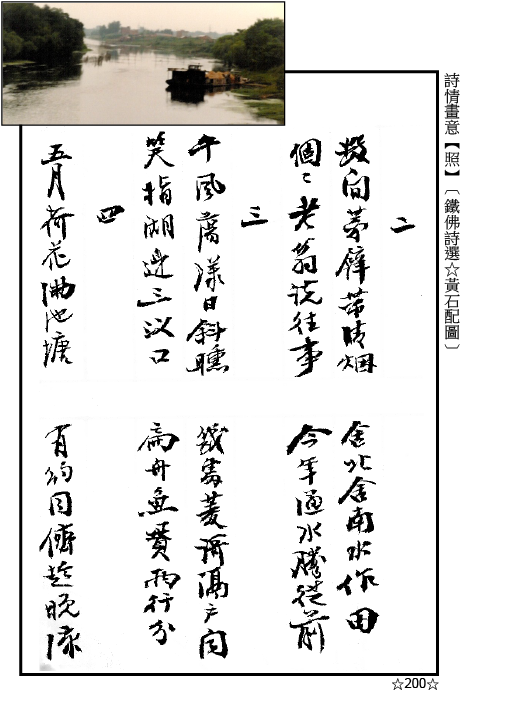 詩情畫意【照】﹝鐵佛詩選☆黃石配圖﹞
二
間茅帶晴烟
舍北舍南水作田
個〻老翁說往事
今年通水勝從前
三
午風蕩漾日斜曛
幾處菱隔户闻
笑指湖邊三汊口
扁舟魚贯兩行分
四
五月荷花滿池塘
有約同儕趁晚涼
☆200☆